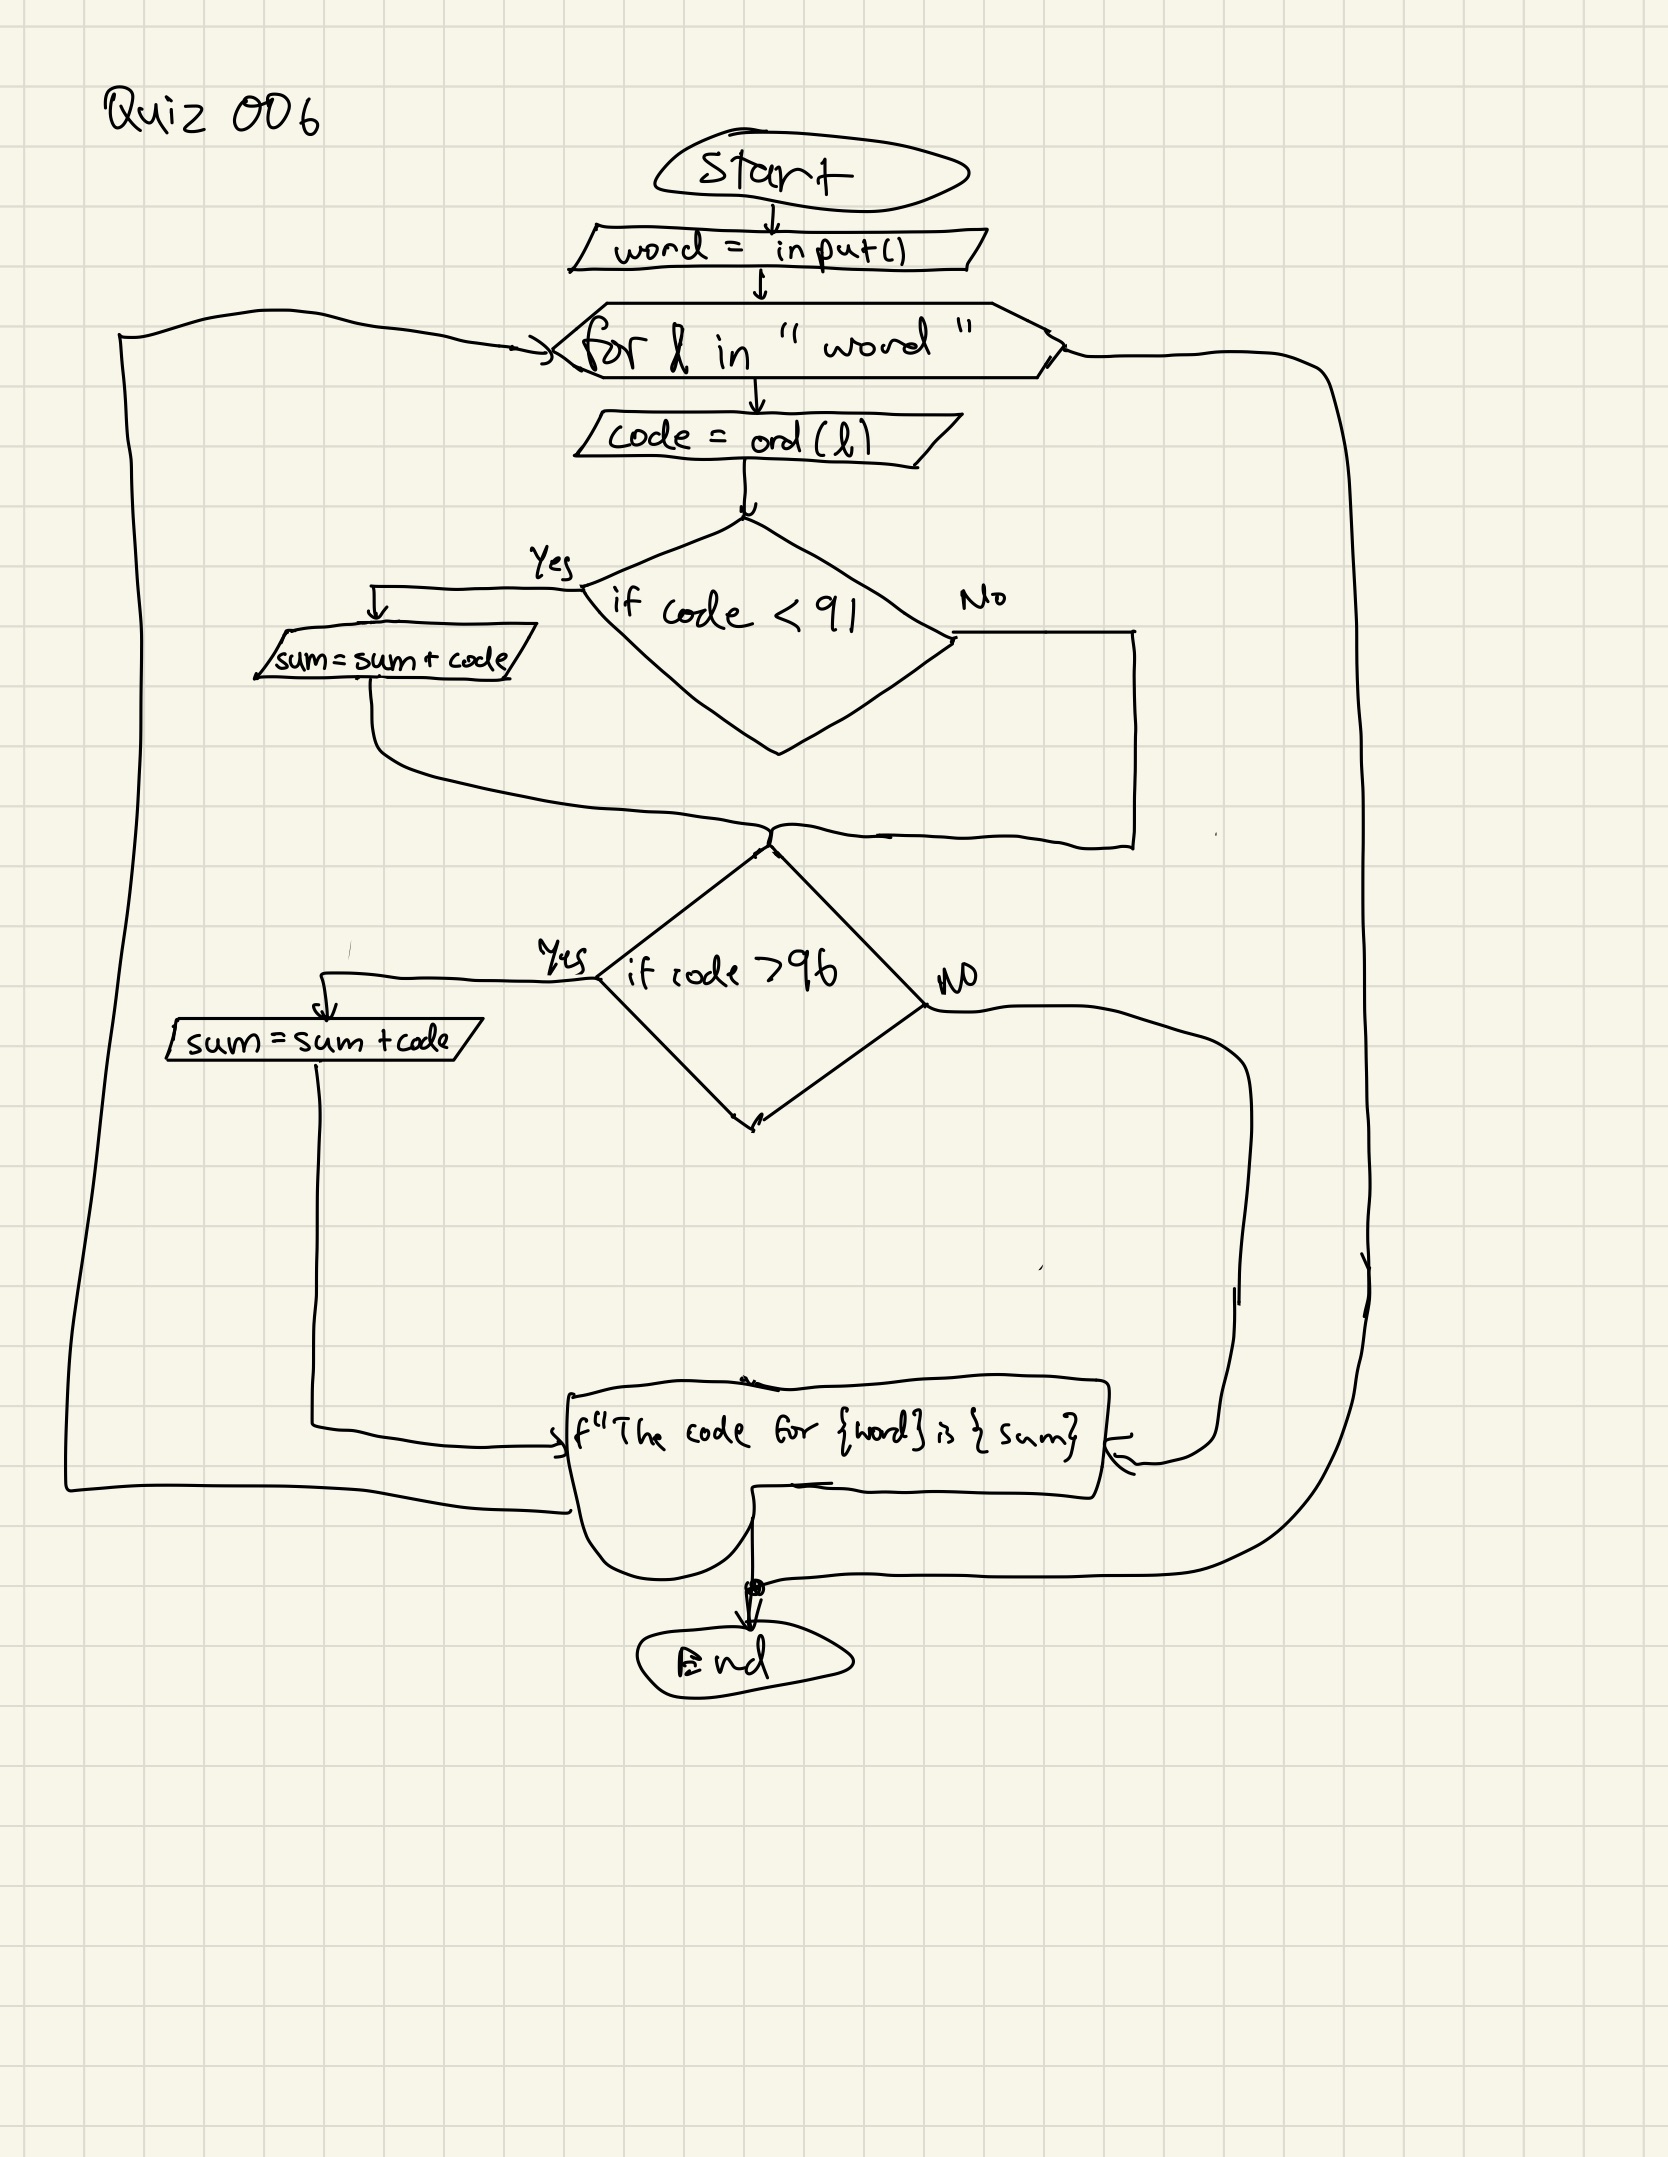 Quiz 006
Start
word = input()
for l in "word"
code = ord(l)
Yes
if code < 91
No
sum=sum+code
Yes
if code >96
NO
sum=sum+code
f"The code for {word} is {sum}
End